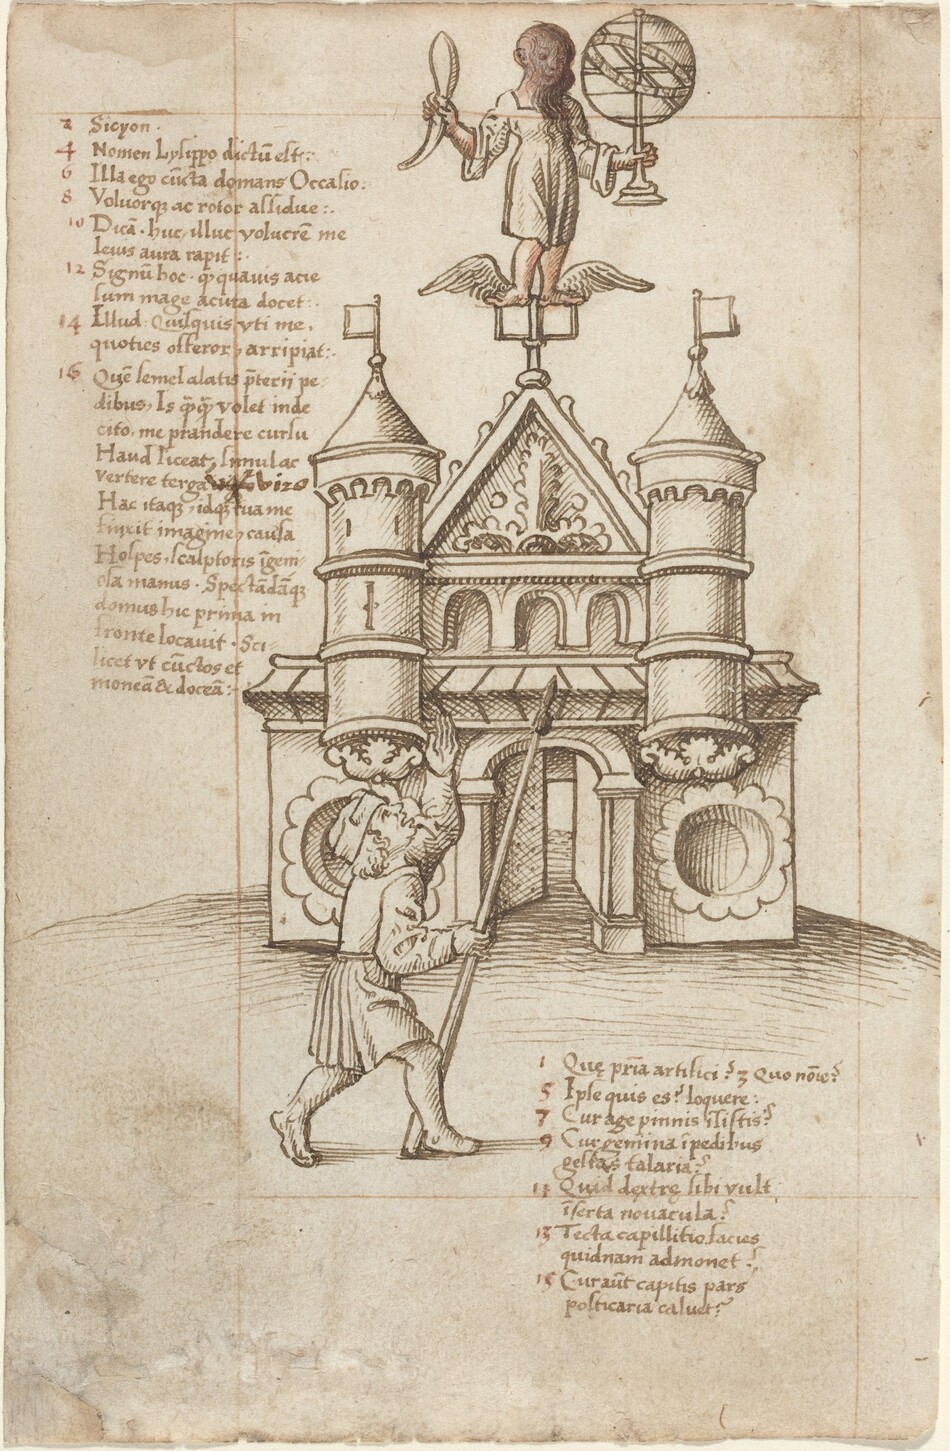 2 Sicyon.
4 Nomen Lysippo dictū est:
6 Illa ego cūcta domans Occasio:
8 Voluorq; ac rotor assidue:.
10 Dicā. huc, illuc volucrē me
leuis aura rapit:
12 Signū hoc. q̃ quauis acie
sum mage acuta docet:.
14 Illud. Quisquis vti me,
quoties offeror, arripiat:.
16 Quē semel alatis p̄terii pe-
dibus, Is q̃q̃ volet inde
cito, me prandere cursu
Haud liceat, simul ac
vertere terga
Hac itaq;, idq; tua me
finxit imagine, causa
Hospes, scalptoris īgeni
osa manus. Spectādāq;
domus hic prima in
fronte locauit. Sci-
licet vt cūctos et
moneā & doceā:-
1 Quę pr̄ia artifici? 3 Quo nōie?
5 Ipse quis es? loquere:
7 Cur age pinnis īsistis?
9 Cur gemina ī pedibus
gestas talaria?
11 Quid dextrę sibi vult
īserta nouacula?
13 Tecta capillitio facies
quidnam admonet?
15 Cur aūt capitis pars
posticaria caluet?